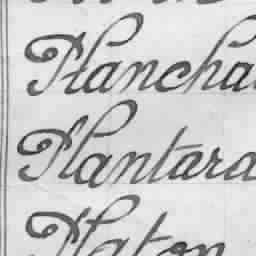 Plancha
Plantara
Platon